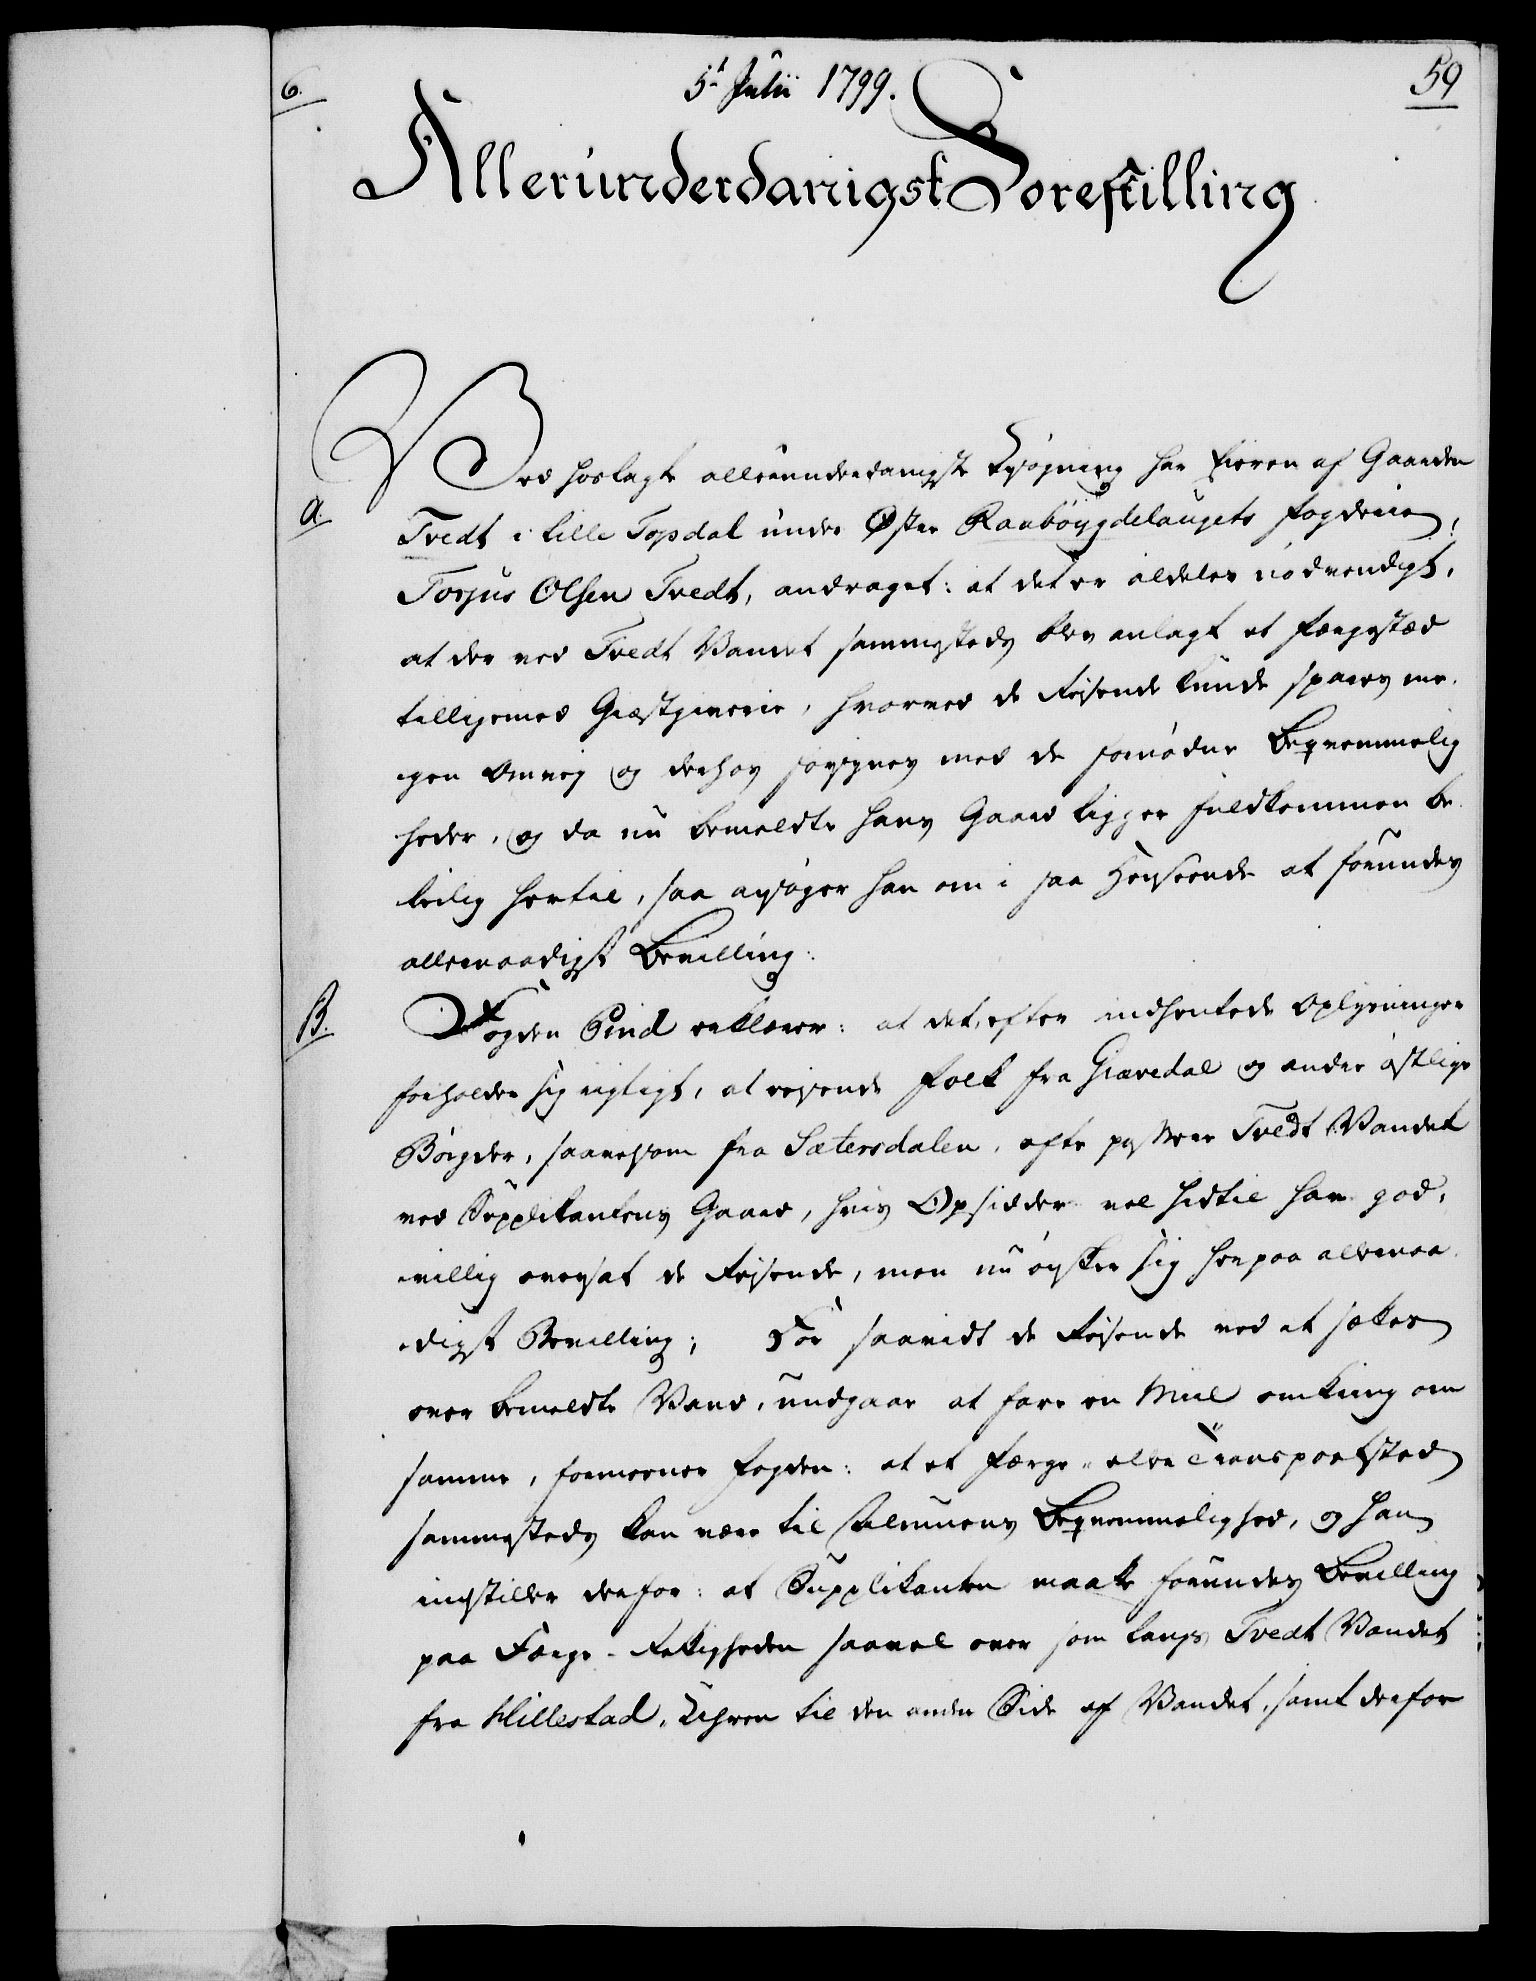 6. 5t Julii 1799. 59
Allerunderdanigst Forestilling
Ved hoslagte allerunderdanigste Ansøgning har Eieren af Gaarden
a. Tvedt i lille Topdal under Øster Raabøygdelaugets Fogderie,
Torjus Olsen Tvedt, andraget: at det er aldeles nødvendigt,
at der ved Tvedt Vandet sammesteds blev anlagt et Færgestæd
tilligemed Giæstgiverie, hvorved de Reisende kunde spares me-
gen Omvej og derhos forsynes med de fornødne Beqvemmelig
heder, og da nu bemeldte hans Gaard ligger fuldkommen be-
leilig hertil, saa ansøger han om i saa Henseende at forundes
allernaadigst Bevilling.
B. Fogden Pind erklærer: at det, efter indhentede Oplysninger
forholder sig rigtigt, at reisende Folk fra Giævedal og andre østlige
Bøigder, saavelsom fra Sætersdalen, ofte passere Tvedt Vandet
ved Supplikantens Gaard, hvis Opsidder vel hidtil har god-
villig oversat de Reisende, men nu ønsker sig herpaa allernaa-
digst Bevilling; For saavidt de Reisende ved at sættes
over bemeldte Vand, undgaar at fare en Miil omkring om
samme, formeener Fogden: at et Færge- eller Transportsted
sammesteds kan være til Almuens Beqvemmelighed, og han
indstiller derfor: at Supplikanten maatte forundes Bevilling
paa Færge-Rettigheden saavel over som langs Tvedt Vandet
fra Hillestad, til den anden Side af Vandet, samt derfor